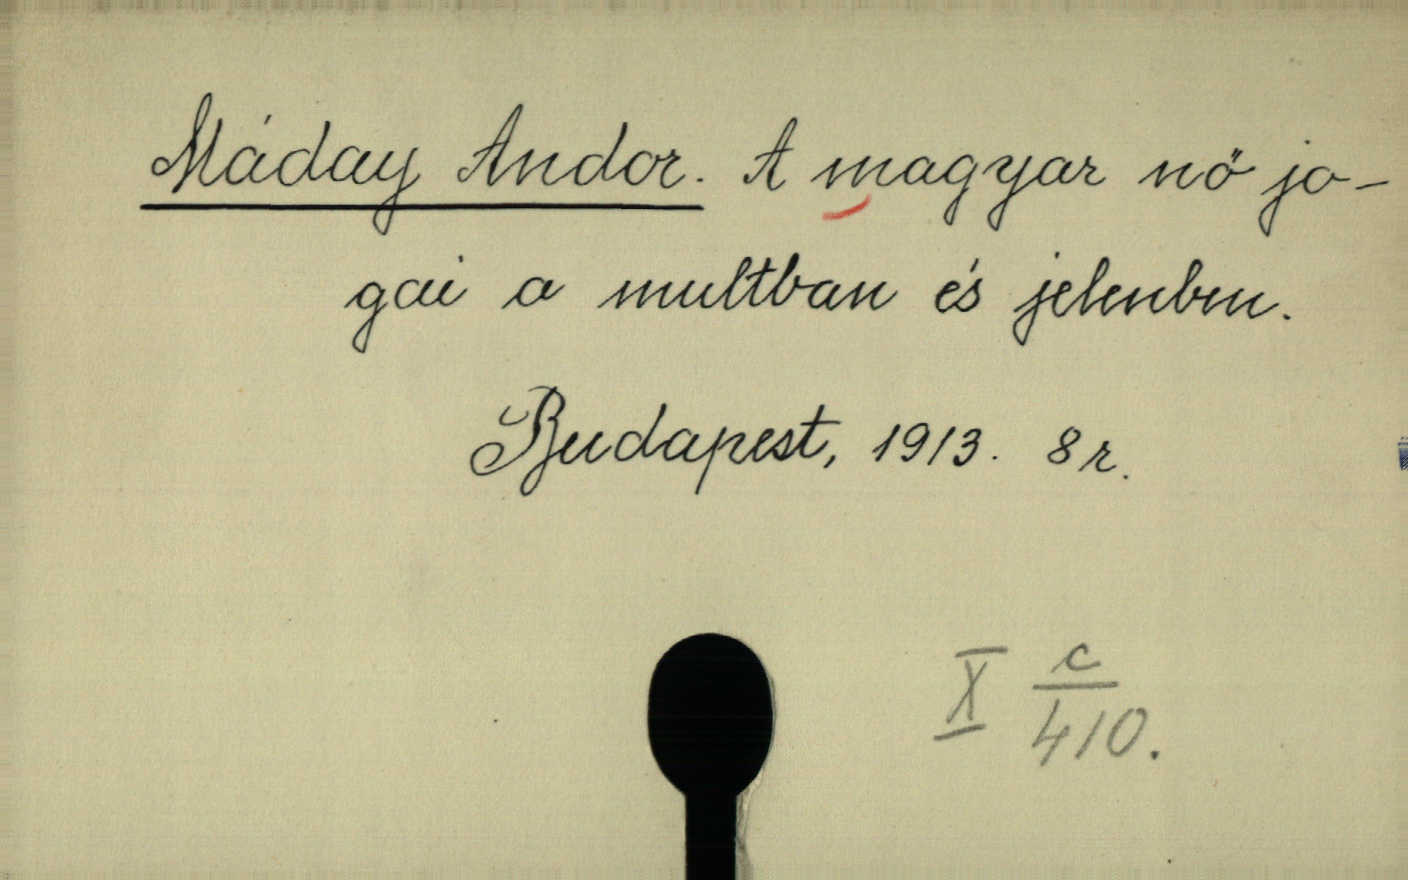 Máday Andor. A magyar nő jo-
gai a multban és jelenben.
Budapest, 1913. 8 r.
X c/410.